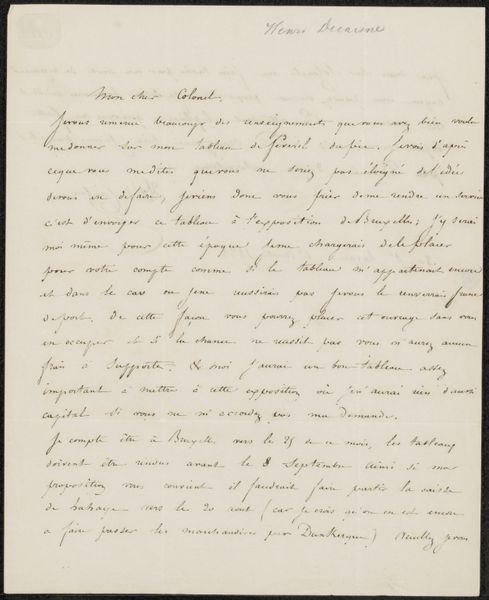 Henri Decaisne
Mon cher Colonel.
Je vous remercie beaucoup des renseignements que vous avez bien voulu
me donner sur mon tableau de Je vois d'après
ce que vous me dites que vous ne seriez pas éloigné de l'idée
de vous en defaire, je viens donc vous prier de me rendre un service
c'est d'envoyer ce tableau à l'exposition de Bruxelles; j'y serai
moi même pour cette époque je me chargerais de le placer
pour votre compte comme si le tableau m'appartenait encore
et dans le cas ou je ne reussirais pas je vous le renverrais franc
de port. De cette façon vous pourrez placer cet ouvrage sans vous
en occuper et si la chance ne reussit pas vous n'aurez aucun
frais à supporter. & moi j'aurai un bon tableau assez
important à mettre à cette exposition où je n'aurai rien d'aussi
capital si vous ne m'accordez pas ma demande.
Je compte être à Bruxelles vers le 25 de ce mois, les tableaux
doivent être rendus avant le 8 Septembre ainsi si ma
proposition vous convient il faudrait faire partir la caisse
de vers le 20 aout (car je crois qu'on en est encore
a faire passer les marchandises par Dunkerque) Veuillez je vous